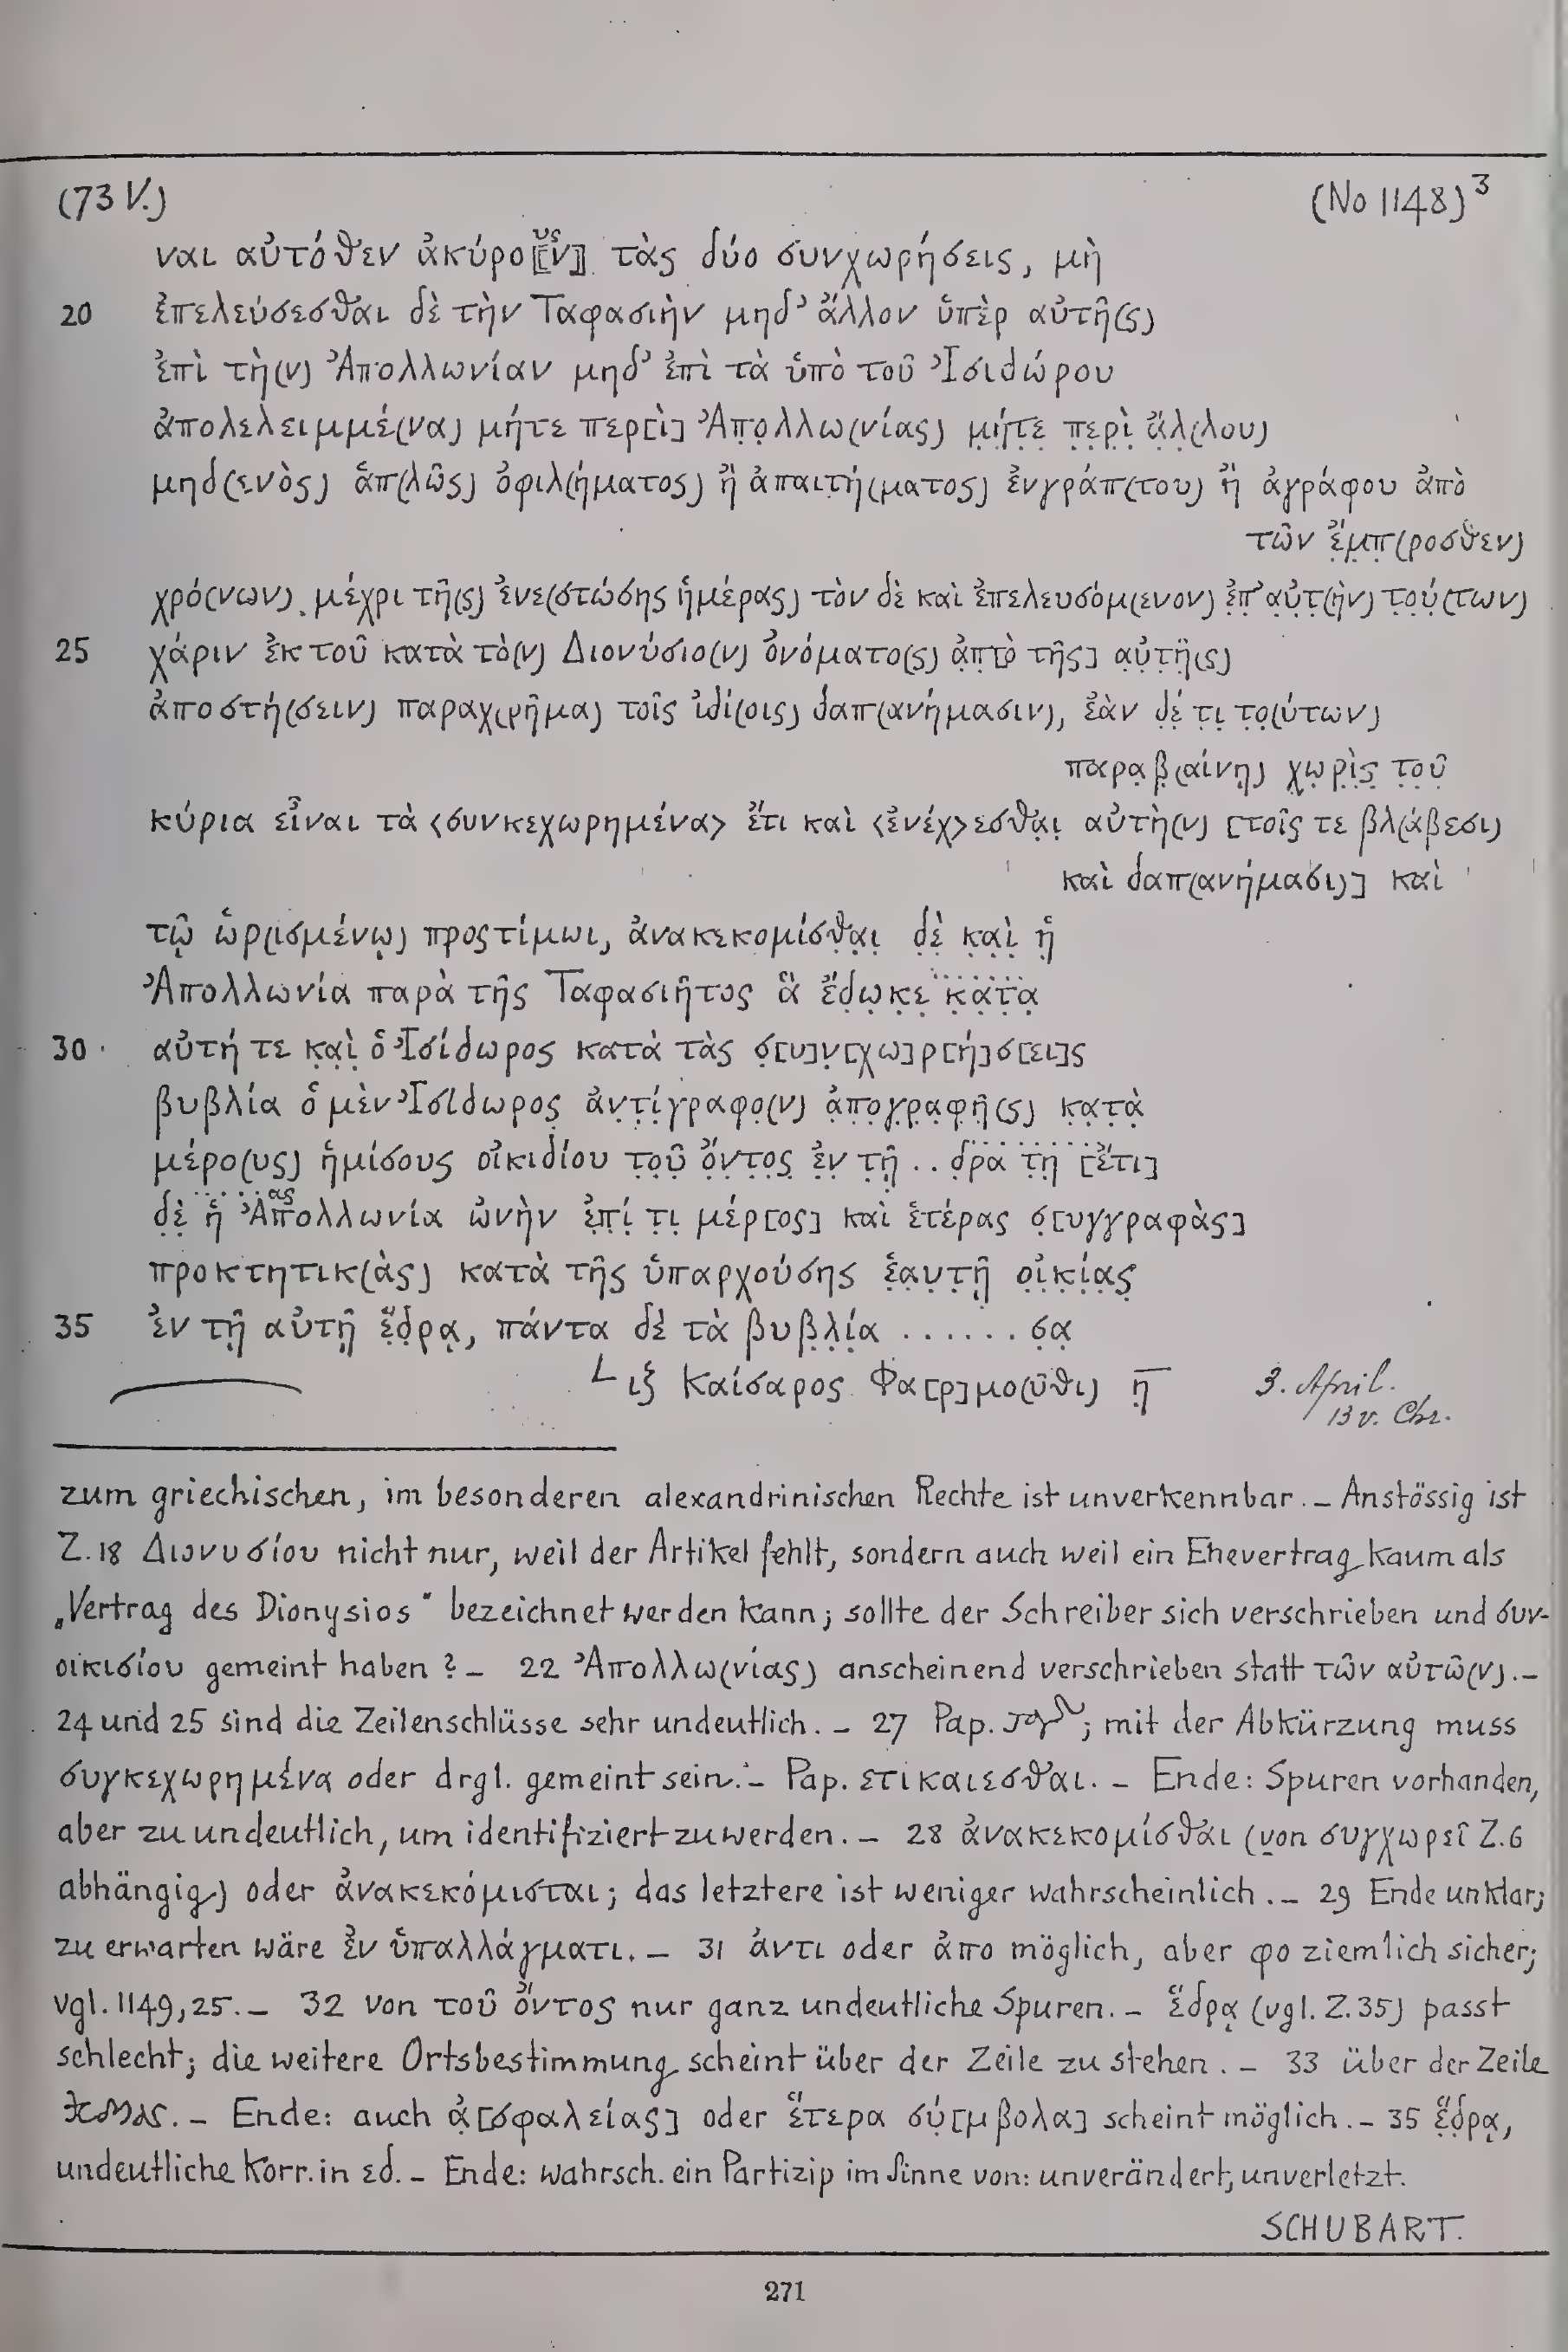 (73 V.) (No 1148)³
ναι αὐτόθεν ἀκύρο⟦ν⟧`υς´ τὰς δύο συνχωρήσεις, μὴ
20 ἐπελεύσεσθαι δὲ τὴν Ταφασιὴν μηδ' ἄλλον ὑπὲρ αὐτῆ(ς)
ἐπὶ τὴ(ν) Ἀπολλωνίαν μηδ' ἐπὶ τὰ ὑπὸ τοῦ Ἰσιδώρου
ἀπολελειμμέ(να) μήτε περ[ὶ] Ἀπ̣ο̣λλω(νίας) μ̣ή̣τ̣ε̣ π̣ε̣ρ̣ὶ̣ ἄ̣λ̣(λου)
μηδ(ενὸς) ἁπ(λῶς) ὀφιλ(ήματος) ἢ ἀπαιτή(ματος) ἐνγράπ(του) ἢ ἀγράφου ἀπὸ
τῶν ἔ̣μ̣π̣(ροσθεν)
χρό(νων) μέχρι τῆ(ς) ἐνε(στώσης ἡμέρας) τὸν δὲ καὶ ἐπελευσόμ(ενον) ἐ̣π̣' α̣ὐ̣τ̣(ὴν) τ̣ο̣ύ̣(των)
25 χάριν ἐκ τοῦ κατὰ τὸ(ν) Διονύσιο(ν) ὀνόματο(ς) ἀ̣π̣[ὸ τῆς] α̣ὐ̣τ̣ῆ̣(ς)
ἀποστή(σειν) παραχ(ρῆμα) τοῖς ἰδί(οις) δαπ(ανήμασιν), ἐὰν δ̣έ̣ τ̣ι̣ τ̣ο̣(ύτων)
παρα̣β̣(αίνῃ) χ̣ω̣ρ̣ὶ̣ς̣ τ̣ο̣ῦ̣
κύρια εἶναι τὰ <συνκεχωρημένα> ἔτι καὶ <ἐνέχ>εσθα̣ι̣ αὐτὴ(ν) [τοῖς τε βλ(άβεσι)
καὶ δαπ(ανήμασι)] καὶ
τῷ ὡρ(ισμένῳ) προστίμωι, ἀνακεκομίσθα̣ι̣ δ̣ὲ̣ κ̣α̣ὶ̣ ἡ̣
Ἀπολλωνία παρὰ τῆς Ταφασιῆτος ἃ ἔδ̣ω̣κ̣ε̣ κ̣α̣τ̣α̣
30 αὐτή τε κ̣α̣ὶ̣ ὁ Ἰσίδωρος κατὰ τὰς σ̣[υ]ν̣[χω]ρ[ή]σ[ει]ς
βυβλία ὁ μὲν Ἰσίδωρο̣ς̣ ἀ̣ν̣τ̣ί̣γραφο̣(ν) ἀ̣π̣ο̣γ̣ρ̣α̣φ̣ῆ̣(ς) κ̣α̣τ̣ὰ̣
μέρο(υς) ἡμίσους οἰκιδίου τ̣ο̣ῦ̣ ὄ̣ν̣τ̣ο̣ς̣ ἐ̣ν̣ τ̣ῇ̣ . . δ̣ρα τ̣η̣ [ἔτι]
δ̣ὲ̣ ἡ̣ Ἀπολλωνία ὠνὴν ἐ̣π̣ί̣ τ̣ι̣ μέρ[ος] καὶ ἑτέρας σ̣[υγγραφὰς]
προκτητικ(ὰς) κατὰ τῆς ὑπαρχούσης ἑ̣α̣υ̣τ̣ῇ̣ ο̣ἰ̣κ̣ί̣α̣ς̣
35 ἐν τῇ αὐτῇ ἕ̣δ̣ρᾳ̣, πάντα δὲ τὰ βυβ̣λ̣ί̣α . . . . . . σ̣α̣
L ιξ Καίσαρος Φα[ρ]μο(ῦθι) η̅ 3. April.
13 v. Chr.
zum griechischen, im besonderen alexandrinischen Rechte ist unverkennbar. – Anstössig ist
Z. 18 Διονυσίου nicht nur, weil der Artikel fehlt, sondern auch weil ein Ehevertrag kaum als
„Vertrag des Dionysios“ bezeichnet werden kann; sollte der Schreiber sich verschrieben und συν-
οικισίου gemeint haben? – 22 Ἀπολλω(νίας) anscheinend verschrieben statt τῶν αὐτῶ(ν). –
24 und 25 sind die Zeilenschlüsse sehr undeutlich. – 27 Pap. ; mit der Abkürzung muss
συγκεχωρημένα oder drgl. gemeint sein. – Pap. ετικαιεσθαι. – Ende: Spuren vorhanden,
aber zu undeutlich, um identifiziert zu werden. – 28 ἀνακεκομίσθαι (von συγχωρεῖ Z. 6
abhängig) oder ἀνακεκόμισται; das letztere ist weniger wahrscheinlich. – 29 Ende unklar;
zu erwarten wäre ἐν ὑπαλλάγματι. – 31 ἀντι oder ἀπο möglich, aber φο ziemlich sicher;
vgl. 1149,25. – 32 von τοῦ ὄντος nur ganz undeutliche Spuren. – ἕδρᾳ (vgl. Z. 35) passt
schlecht; die weitere Ortsbestimmung scheint über der Zeile zu stehen. – 33 über der Zeile
. – Ende: auch ἀ̣[σφαλείας] oder ἕτερα σύ̣[μβολα] scheint möglich. – 35 ἕ̣δ̣ρᾳ,
undeutliche Korr. in εδ. – Ende: wahrsch. ein Partizip im Sinne von: unverändert, unverletzt.
SCHUBART.
271